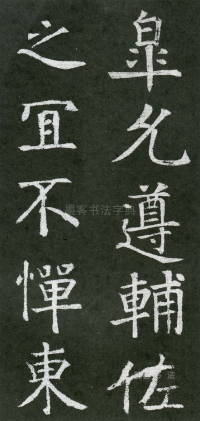 皐允遵輔佐
之冝不憚東
墨客书法字典